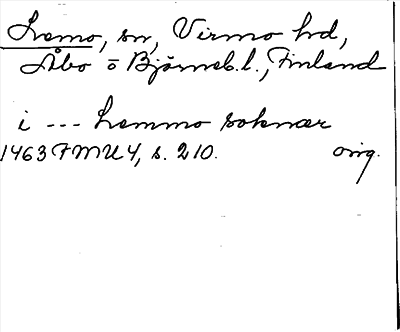 Lemo, sn, Virmo hd,
Åbo o Björneb.l., Finland
i --- Lemmo soknær
1463 FMU 4, s. 210. orig.